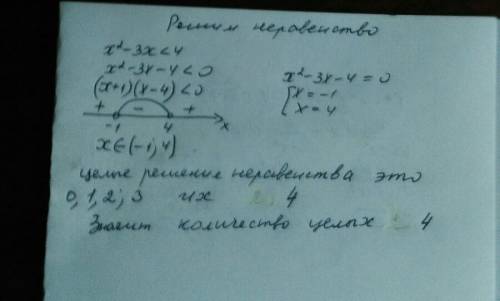 Решим неравенство
x²-3x<4
x²-3x-4<0
(x+1)(x-4)<0
x²-3x-4=0
x=-1
x=4
+ - +
-1 4 x
x∈(-1;4)
целые решение неравенства это
0,1,2,3 их 4
Значит количество целых 4